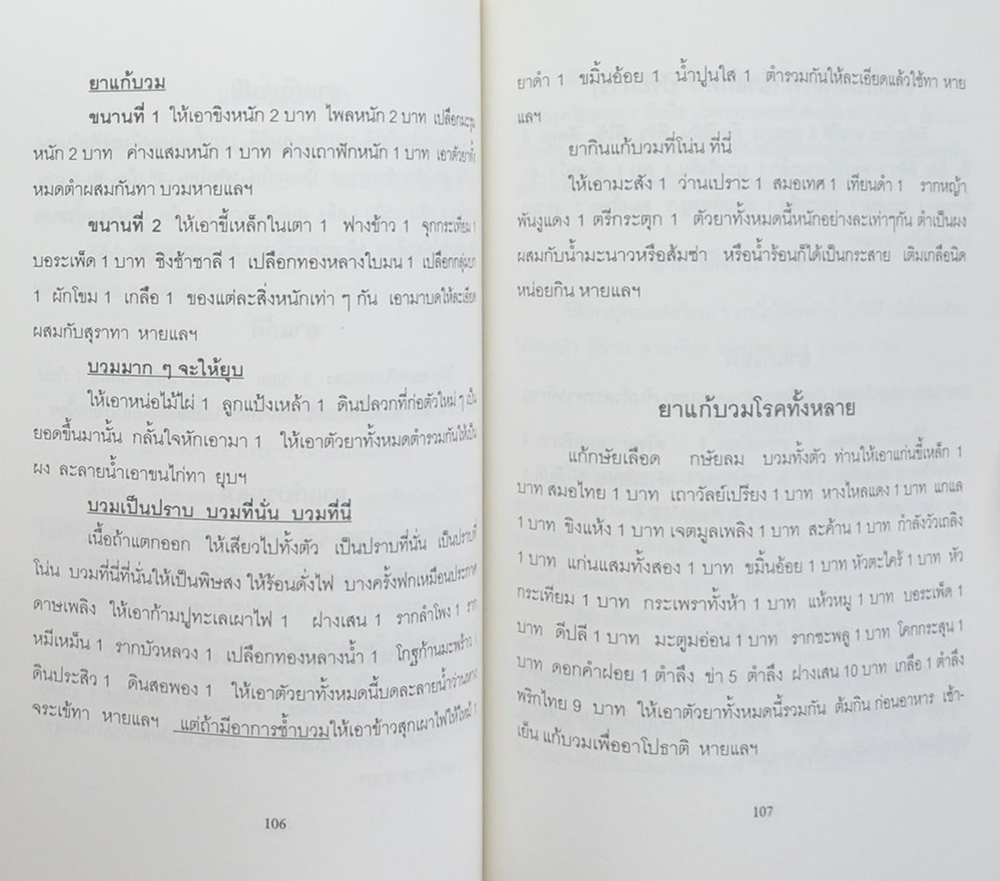 ยาแก้บวม
ขนานที่ 1 ให้เอาขิงหนัก 2 บาท ไพลหนัก 2 บาท เปลือกมะรุม
หนัก 2 บาท ค่างแสมหนัก 1 บาท ค่างเถาฟักหนัก 1 บาท เอาตัวยาทั้ง
หมดตำผสมกันทา บวมหายแลฯ
ขนานที่ 2 ให้เอาขี้เหล็กในเตา 1 ฟางข้าว 1 จุกกระเทียม 1
บอระเพ็ด 1 บาท ชิงช้าชาลี 1 เปลือกทองหลางใบมน 1 เปลือกกลุ่มบก
1 ผักโขม 1 เกลือ 1 ของแต่ละสิ่งหนักเท่า ๆ กัน เอามาบดให้ละเอียด
ผสมกับสุราทา หายแลฯ
บวมมาก ๆ จะให้ยุบ
ให้เอาหน่อไม้ไผ่ 1 ลูกแป้งเหล้า 1 ดินปลวกที่ก่อตัวใหม่ ๆ เป็น
ยอดขึ้นมานั้น กลั้นใจหักเอามา 1 ให้เอาตัวยาทั้งหมดตำรวมกันให้เป็น
ผง ละลายน้ำเอาขนไก่ทา ยุบฯ
บวมเป็นปราบ บวมที่นั่น บวมที่นี่
เนื้อถ้าแตกออก ให้เสียวไปทั้งตัว เป็นปราบที่นั่น เป็นปราบที่
โน่น บวมที่นี่ที่นั่นให้เป็นพิษสง ให้ร้อนดั่งไฟ บางครั้งฟกเหมือนประกาศ
ดาษเพลิง ให้เอาก้ามปูทะเลเผาไฟ 1 ฝางเสน 1 รากลำโพง 1 ราก
หมีเหม็น 1 รากบัวหลวง 1 เปลือกทองหลางน้ำ 1 โกฐก้านมะพร้าว 1
ดินประสิว 1 ดินสอพอง 1 ให้เอาตัวยาทั้งหมดนี้บดละลายน้ำว่านหาง
จระเข้ทา หายแลฯ แต่ถ้ามีอาการช้ำบวมให้เอาข้าวสุกเผาไฟให้ไหม้ 1
106
ยาดำ 1 ขมิ้นอ้อย 1 น้ำปูนใส 1 ตำรวมกันให้ละเอียดแล้วใช้ทา หาย
แลฯ
ยากินแก้บวมที่โน่น ที่นี่
ให้เอามะสัง 1 ว่านเปราะ 1 สมอเทศ 1 เทียนดำ 1 รากหญ้า
พันงูแดง 1 ตรีกระตุก 1 ตัวยาทั้งหมดนี้หนักอย่างละเท่าๆกัน ตำเป็นผง
ผสมกับน้ำมะนาวหรือส้มซ่า หรือน้ำร้อนก็ได้เป็นกระสาย เติมเกลือนิด
หน่อยกิน หายแลฯ
ยาแก้บวมโรคทั้งหลาย
แก้กษัยเลือด กษัยลม บวมทั้งตัว ท่านให้เอาแก่นขี้เหล็ก 1
บาท สมอไทย 1 บาท เถาวัลย์เปรียง 1 บาท หางไหลแดง 1 บาท แกแล
1 บาท ขิงแห้ง 1 บาท เจตมูลเพลิง 1 บาท สะค้าน 1 บาท กำลังวัวเถลิง
1 บาท แก่นแสมทั้งสอง 1 บาท ขมิ้นอ้อย 1 บาท หัวตะไคร้ 1 บาท หัว
กระเทียม 1 บาท กระเพราทั้งห้า 1 บาท แห้วหมู 1 บาท บอระเพ็ด 1
บาท ดีปลี 1 บาท มะตูมอ่อน 1 บาท รากชะพลู 1 บาท โคกกระสุน 1
บาท ดอกคำฝอย 1 ตำลึง ข่า 5 ตำลึง ฝางเสน 10 บาท เกลือ 1 ตำลึง
พริกไทย 9 บาท ให้เอาตัวยาทั้งหมดนี้รวมกัน ต้มกิน ก่อนอาหาร เช้า-
เย็น แก้บวมเพื่ออาโปธาติ หายแลฯ
107